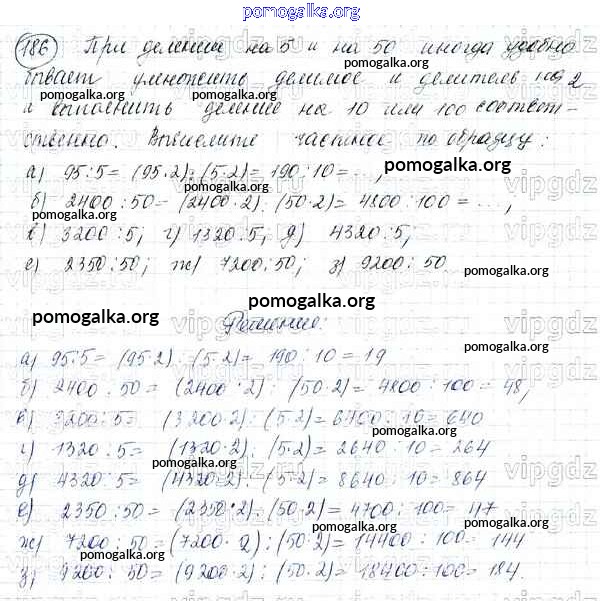 pomogalka.org
186 При делении на 5 и на 50 иногда удобно
бывает умножить делимое и делитель на 2
и выполнить деление на 10 или 100 соответ-
ственно. Вычислите частное по образцу:
а) 95:5=(95·2):(5·2)=190:10=...,
pomogalka.org
б) 2400:50=(2400·2):(50·2)=4800:100=...,
pomogalka.org
в) 3200:5; г) 1320:5; д) 4320:5;
pomogalka.org
е) 2350:50; ж) 7200:50; з) 9200:50
pomogalka.org
pomogalka.org
pomogalka.org
Решение:
а) 95:5=(95·2):(5·2)=190:10=19
pomogalka.org
б) 2400:50=(2400·2):(50·2)=4800:100=48,
pomogalka.org
в) 3200:5=(3200·2):(5·2)=6400:10=640
г) 1320:5=(1320·2):(5·2)=2640:10=264
pomogalka.org
pomogalka.org
д) 4320:5=(4320·2):(5·2)=8640:10=864
е) 2350:50=(2350·2):(50·2)=4700:100=47
pomogalka.org
ж) 7200:50=(7200·2):(50·2)=14400:100=144
pomogalka.org
pomogalka.org
з) 9200:50=(9200·2):(50·2)=18400:100=184.
pomogalka.org
vipgdz